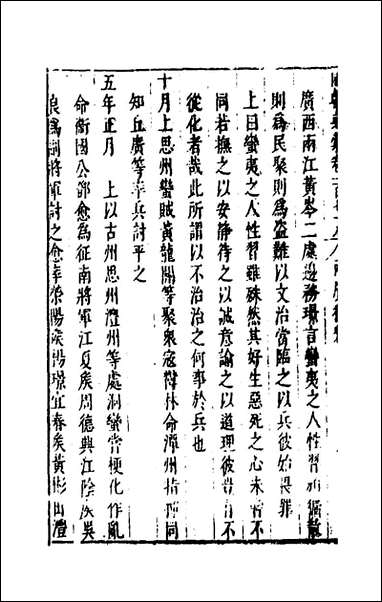 廣西兩江黃岑二處邊務璟言蠻夷之人性習頑獷散
則爲民聚則爲盜難以文治當臨之以兵彼始畏罪
上曰蠻夷之人性習雖殊然其好生惡死之心未嘗不
同若撫之以安靜待之以誠意諭之以道理彼豈有不
從化者哉此所謂以不治治之何事於兵也
十月上思州蠻賊黃龍關等聚衆寇鬱林命潯州指揮同
知丘廣等率兵討平之
五年正月　上以古州思州澧州等處洞蠻嘗梗化作亂
命衛國公鄧愈爲征南將軍江夏矦周德興江陰矦吳
良爲副將軍討之愈率滎陽矦楊璟宜春矦黃彬出澧